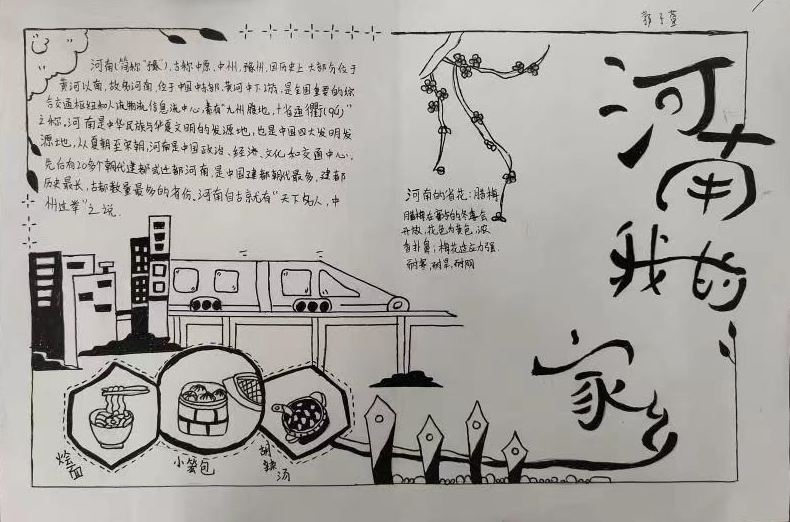 郭子萱
河南我的家乡
河南(简称"豫"),古称中原、中州、豫州,因历史上大部分位于
黄河以南,故名河南,位于中国中部,黄河中下游,是全国重要的综
合交通枢纽和人流物流信息流中心,素有"九州腹地,十省通衢(qú)"
之称,河南是中华民族与华夏文明的发源地,也是中国四大发明发
源地,从夏朝至宋朝,河南是中国政治、经济、文化和交通中心,
先后有20多个朝代建都或迁都河南,是中国建都朝代最多,建都
历史最长,古都数量最多的省份。河南自古就有"天下名人,中
州过半"之说.
河南的省花:腊梅
腊梅在寒冷的冬季会
开放,花色为黄色,浓
香扑鼻;梅花适应力强,
耐寒,耐旱,耐阴
烩面
小笼包
胡辣汤